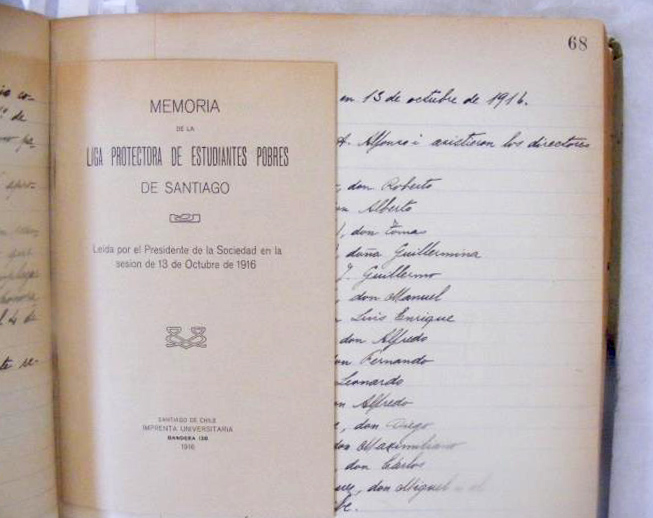 68
MEMORIA
DE LA
LIGA PROTECTORA DE ESTUDIANTES POBRES
DE SANTIAGO
Leida por el Presidente de la Sociedad en la
sesion de 13 de Octubre de 1916
SANTIAGO DE CHILE
IMPRENTA UNIVERSITARIA
BANDERA 130
1916
en 13 de octubre de 1916.
A. Alfonso i asistieron los directores
don Roberto
Alberto
don Tomas
doña Guillermina
J. Guillermo
don Manuel
Luis Enrique
don Alfredo
Fernando
Leonardo
Alfredo
don Diego
don Maximiliano
don Cárlos
don Miguel